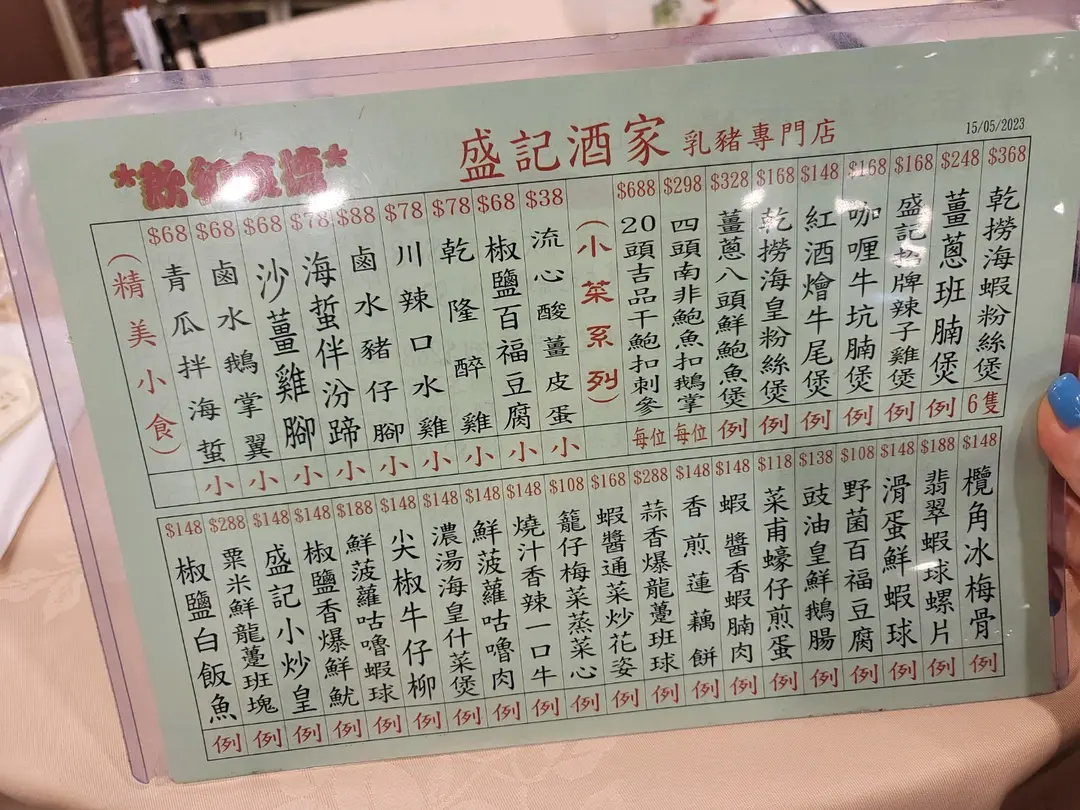 盛記酒家 乳豬專門店
15/05/2023
(小菜系列)
$368 乾撈海蝦粉絲煲 6隻
$248 薑蔥班腩煲 例
$168 盛記招牌辣子雞煲 例
$168 咖喱牛坑腩煲 例
$148 紅酒燴牛尾煲 例
$168 乾撈海皇粉絲煲 例
$328 薑蔥八頭鮮鮑魚煲 例
$298 四頭南非鮑魚扣鵝掌 每位
$688 20頭吉品干鮑扣刺參 每位
(精美小食)
$38 流心酸薑皮蛋 小
$68 椒鹽百福豆腐 小
$78 乾隆醉雞 小
$78 川辣口水雞 小
$88 鹵水豬仔腳 小
$78 海蜇伴汾蹄 小
$68 沙薑雞腳 小
$68 鹵水鵝掌翼 小
$68 青瓜拌海蜇 小
$148 欖角冰梅骨 例
$188 翡翠蝦球螺片 例
$148 滑蛋鮮蝦球 例
$108 野菌百福豆腐 例
$138 豉油皇鮮鵝腸 例
$118 菜甫蠔仔煎蛋 例
$148 蝦醬香蝦腩肉 例
$148 香煎蓮藕餅 例
$288 蒜香爆龍躉班球 例
$168 蝦醬通菜炒花姿 例
$108 籠仔梅菜蒸菜心 例
$148 燒汁香辣一口牛 例
$148 鮮菠蘿咕嚕肉 例
$148 濃湯海皇什菜煲 例
$148 尖椒牛仔柳 例
$188 鮮菠蘿咕嚕蝦球 例
$148 椒鹽香爆鮮魷 例
$148 盛記小炒皇 例
$288 粟米鮮龍躉班塊 例
$148 椒鹽白飯魚 例